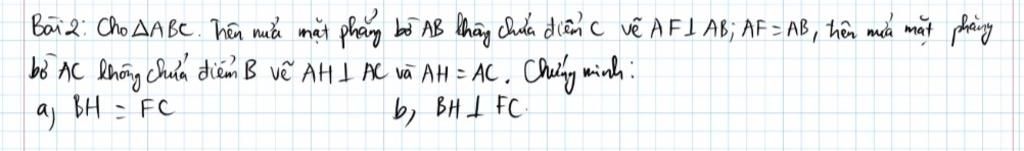 Bài 2: Cho ΔABC. Trên nửa mặt phẳng bờ AB không chứa điểm C vẽ AF⊥ AB; AF = AB, trên nửa mặt phẳng
bờ AC không chứa điểm B vẽ AH ⊥ AC và AH = AC. Chứng minh:
a, BH = FC b, BH ⊥ FC.